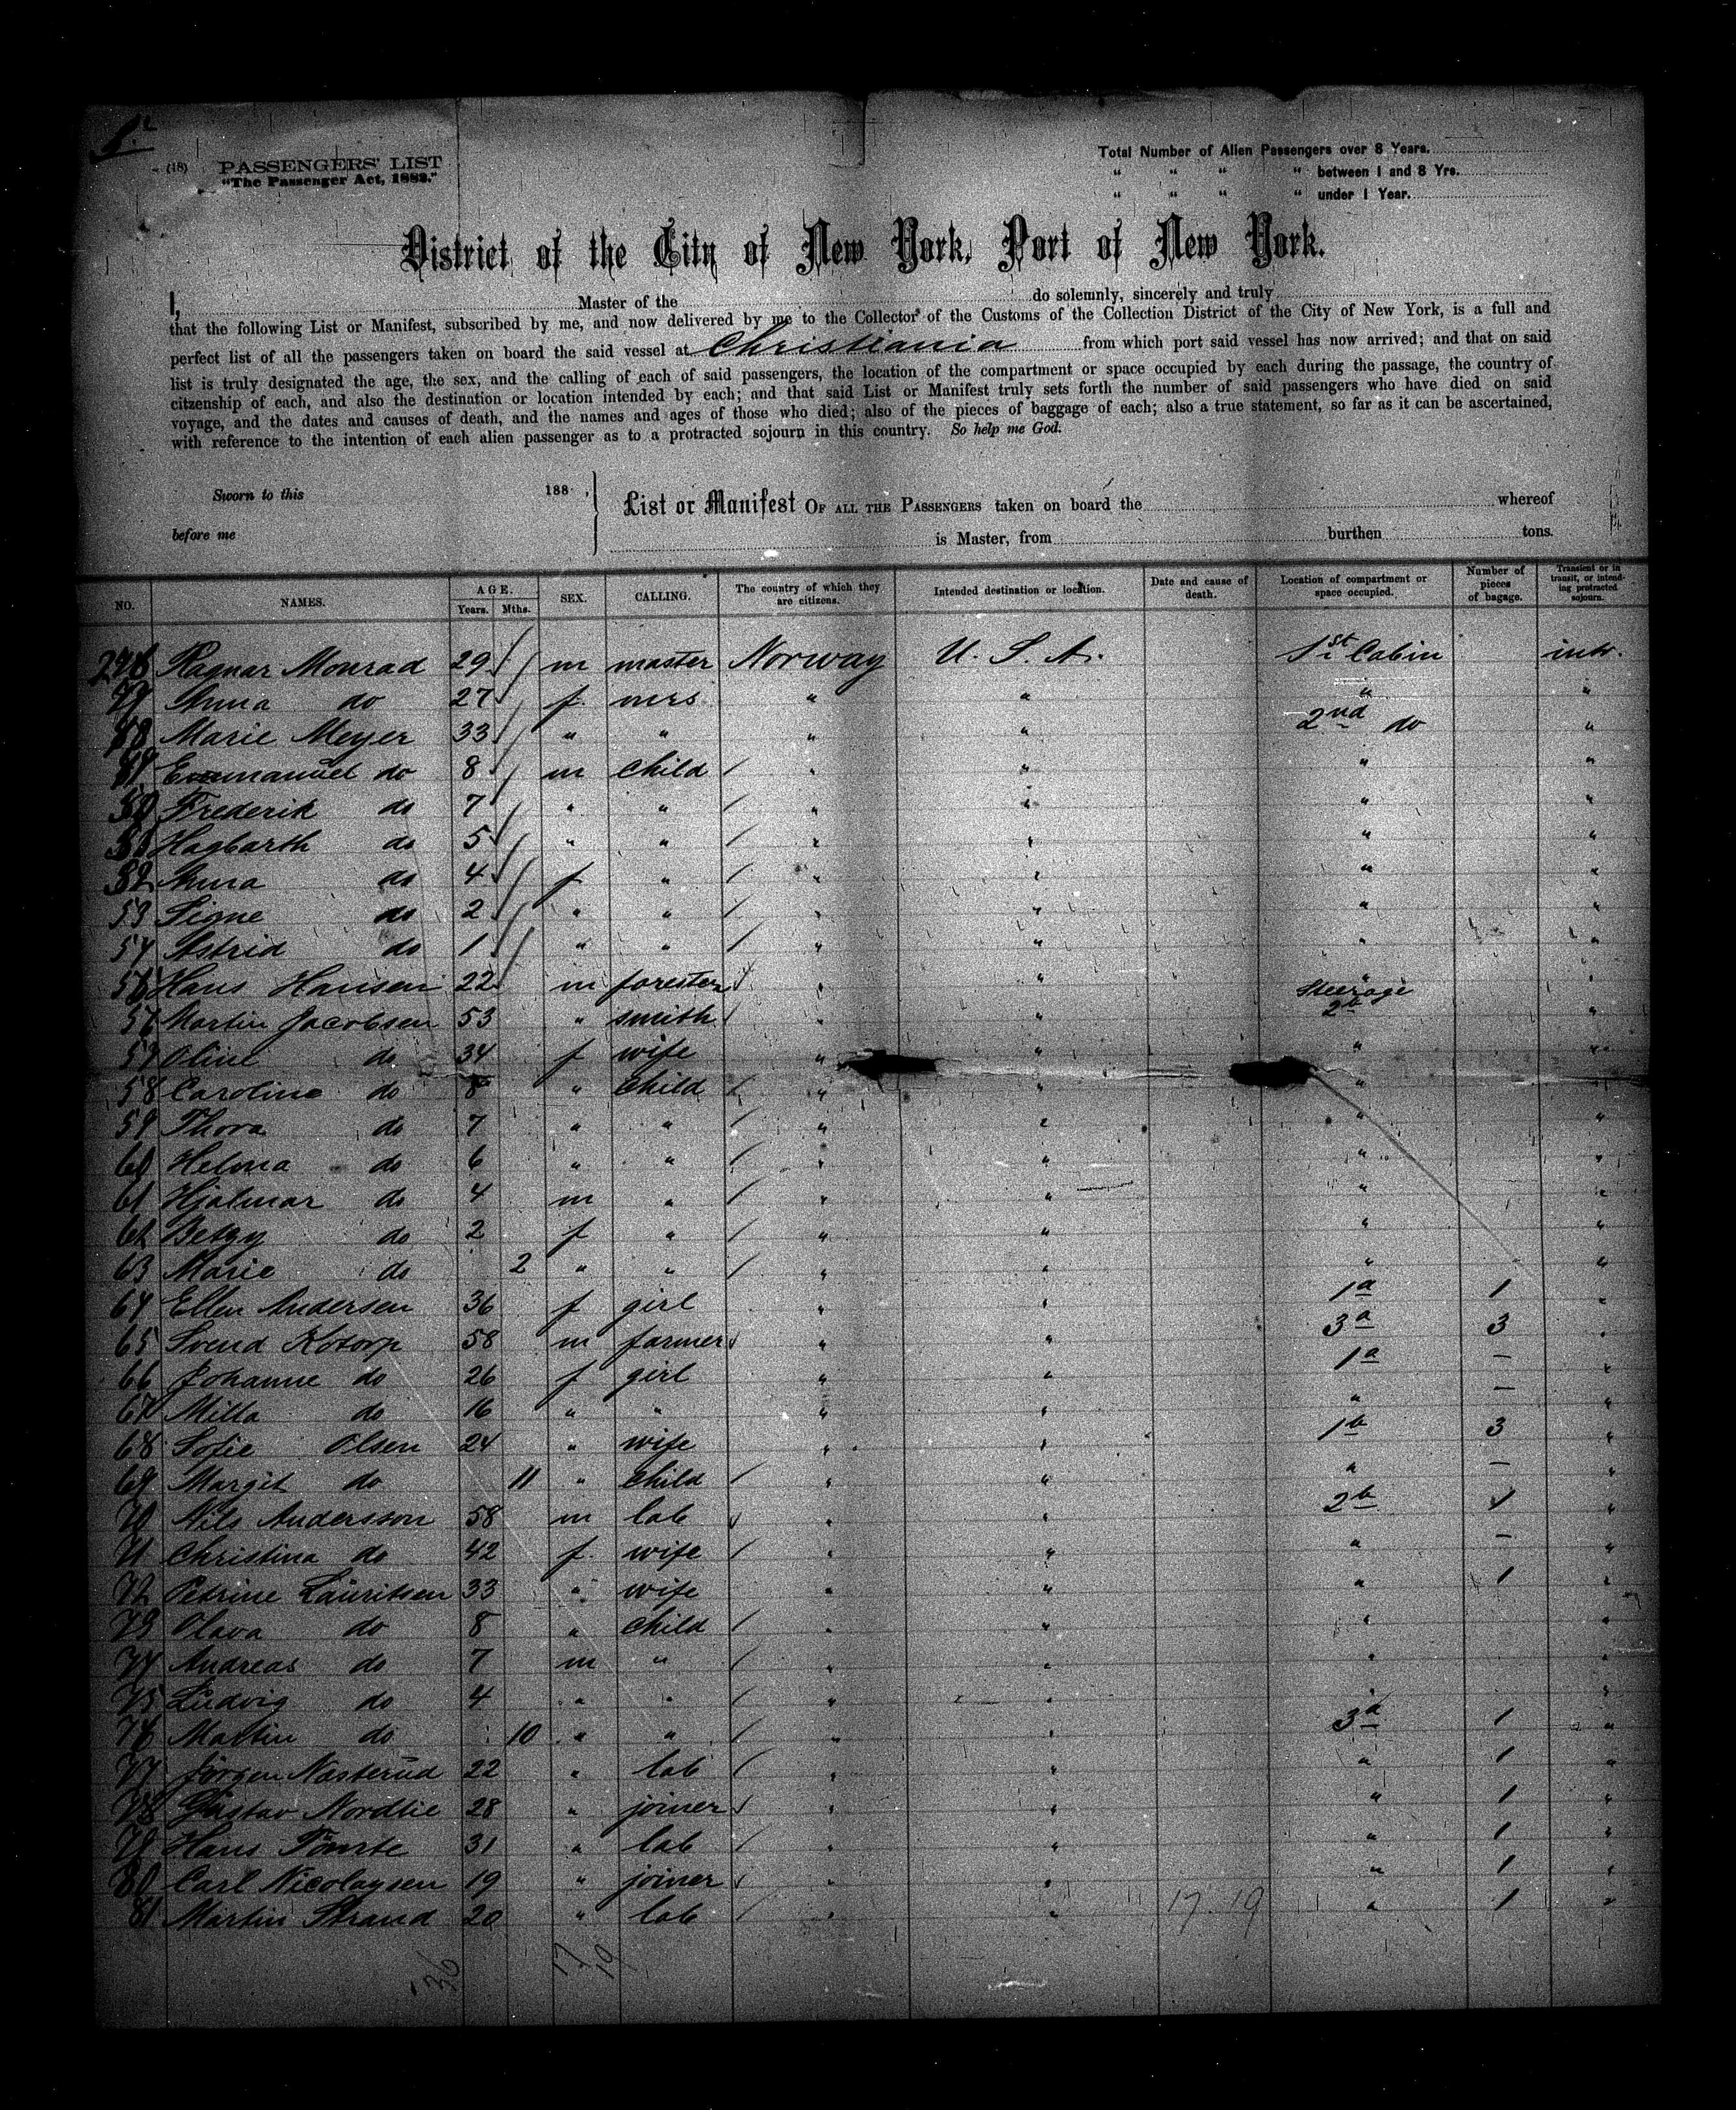 (18) PASSENGERS' LIST
"The Passenger Act, 1882."
Total Number of Alien Passengers over 8 Years.
" " " " between 1 and 8 Yrs.
" " " " under 1 Year.
District of the City of New York, Port of New York.
I, Master of the do solemnly, sincerely and truly
that the following List or Manifest, subscribed by me, and now delivered by me to the Collector of the Customs of the Collection District of the City of New York, is a full and
perfect list of all the passengers taken on board the said vessel at Christiania from which port said vessel has now arrived; and that on said
list is truly designated the age, the sex, and the calling of each of said passengers, the location of the compartment or space occupied by each during the passage, the country of
citzenship of each, and also the destination or location intended by each; and that said List or Manifest truly sets forth the number of said passengers who have died on said
voyage, and the dates and causes of death, and the names and ages of those who died; also of the pieces of baggage of each; also a true statement, so far as it can be ascertained,
with reference to the intention of each alien passenger as to a protracted sojourn in this country. So help me God.
Sworn to this 188 ,
before me
List or Manifest OF ALL THE PASSENGERS taken on board the whereof
is Master, from burthen tons.
NO. NAMES. AGE. Years. Mths. SEX. CALLING. The country of which they are citizens. Intended destination or location. Date and cause of death. Location of compartment or space occupied. Number of pieces of bagage. Transient or in transit, or intending protracted sojourn.
Ragnar Monrad 29 m master Norway U. S. A. 1st Cabin intr.
Anna do 27 f. mrs " " " "
Marie Meyer 33 " " " " 2nd do "
Emmanuel do 8 m child " " " "
Frederik do 7 " " " " " "
Hagbarth do 5 " " " " " "
52 Anna do 4 f " " " " "
53 Signe do 2 " " " " " "
54 Astrid do 1 " " " " " "
Hans Hansen 22 m forester " " " "
Martin Jacobsen 53 " smith " " Steerage 2b "
57 Oline do 34 f wife " " " "
58 Caroline do 8 " child " " "
59 Thora do 7 " " " " " "
60 Helma do 6 " " " " " "
61 Hjalmar do 4 m " " " " "
62 Betzy do 2 f " " " " "
63 Marie do 2 " " " " " "
64 Ellen Andersen 36 f girl " " 1a 1 "
65 Svend Kotorp 58 m farmer " " 3a 3 "
66 Johanne do 26 f girl " " 1a — "
67 Milla do 16 " " " " " — "
68 Sofie Olsen 24 " wife " " 1b 3 "
69 Margit do 11 " child " " " — "
70 Nils Andersson 58 m lab " " 2b 1 "
71 Christina do 42 f. wife " " " — "
72 Petrine Lauritsen 33 " wife " " " 1 "
73 Olava do 8 " child " " " "
74 Andreas do 7 m " " " " "
75 Ludvig do 4 " " " " " "
76 Martin do 10 " " " " 3a 1 "
77 Jörgen Nasterud 22 " lab " " " 1 "
78 Gustav Nordlie 28 " joiner " " " 1 "
79 Hans Tomte 31 " lab " " " 1 "
80 Carl Nicolaysen 19 " joiner " " " 1 "
81 Martin Strand 20 " lab " " 17 19 " 1 "
36 17 19